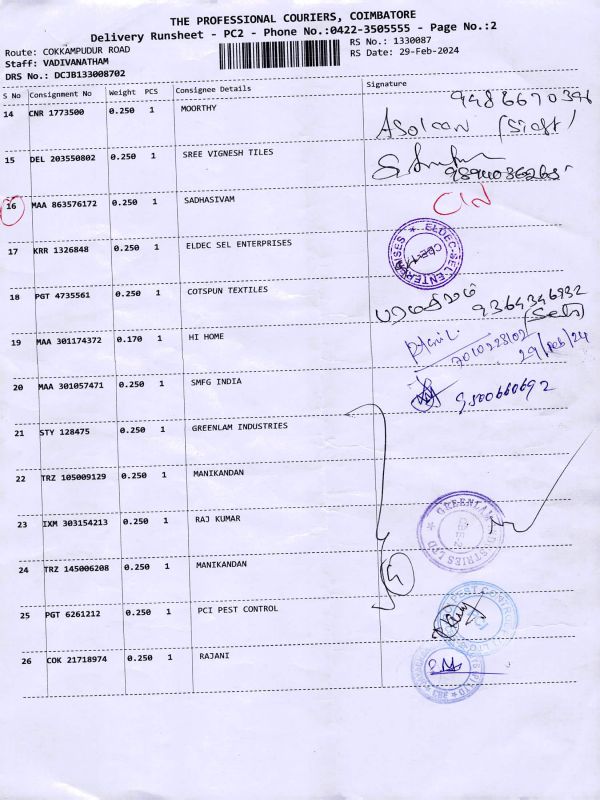 THE PROFESSIONAL COURIERS, COIMBATORE
Delivery Runsheet - PC2 - Phone No.:0422-3505555 - Page No.:2
Route: COKKAMPUDUR ROAD
RS No.: 1330087
Staff: VADIVANATHAM
RS Date: 29-Feb-2024
DRS No.: DCJB133008702
S No Consignment No Weight PCS Consignee Details Signature
14 CNR 1773500 0.250 1 MOORTHY
15 DEL 203550802 0.250 1 SREE VIGNESH TILES
16 MAA 863576172 0.250 1 SADHASIVAM
17 KRR 1326848 0.250 1 ELDEC SEL ENTERPRISES
ELDEC-SEL ENTERPRISES
18 PGT 4735561 0.250 1 COTSPUN TEXTILES
9364346932
19 MAA 301174372 0.170 1 HI HOME
7010228102
29/Feb/24
20 MAA 301057471 0.250 1 SMFG INDIA
9500660692
21 STY 128475 0.250 1 GREENLAM INDUSTRIES
22 TRZ 105009129 0.250 1 MANIKANDAN
23 IXM 303154213 0.250 1 RAJ KUMAR
GREENLAM INDUSTRIES LTD
24 TRZ 145006208 0.250 1 MANIKANDAN
25 PGT 6261212 0.250 1 PCI PEST CONTROL
26 COK 21718974 0.250 1 RAJANI